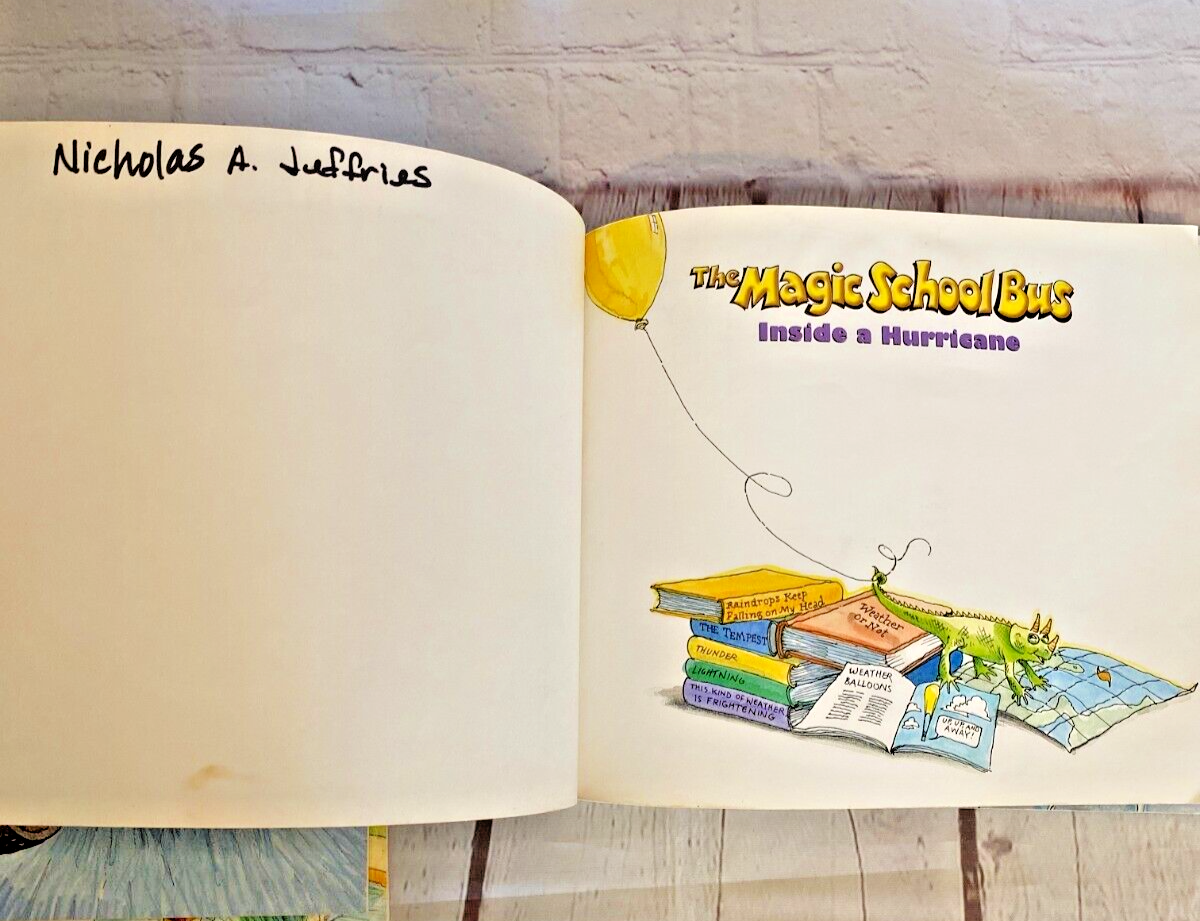 Nicholas A. Jeffries
The Magic School Bus
Inside a Hurricane
Raindrops Keep
Falling on My Head
THE TEMPEST
THUNDER
LIGHTNING
THIS KIND OF WEATHER
IS FRIGHTENING
Weather
or Not
WEATHER
BALLOONS
UP, UP, AND
AWAY!